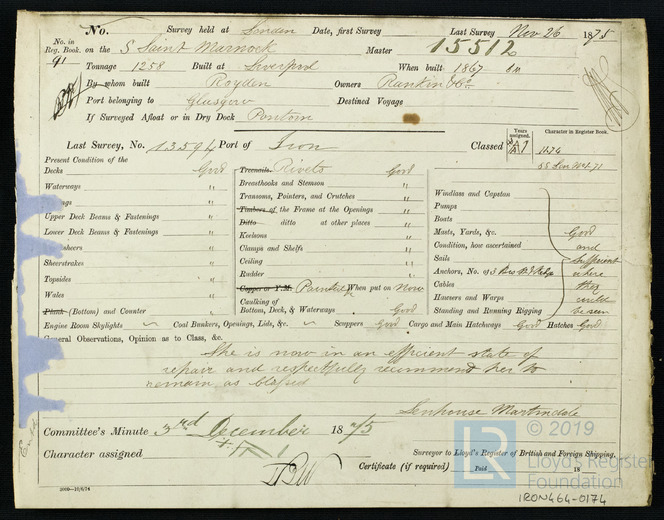 No. Survey held at London Date, first Survey Last Survey Nov 26 1875
No. in Reg. Book. 91 on the S Saint Marnock Master 15512
Tonnage 1258 Built at Liverpool When built 1867
By whom built Royden Owners Rankin & Co.
Port belonging to Glasgow Destined Voyage
If Surveyed Afloat or in Dry Dock Pontoon
Last Survey, No. 13594 Port of Iron Classed Years assigned. A1 Character in Register Book. 11.74
Present Condition of the
Decks Good Treenails Rivets Good
Waterways " Breasthooks and Stemson " Windlass and Capstan
Transoms, Pointers, and Crutches " Pumps
Upper Deck Beams & Fastenings " Timbers of the Frame at the Openings " Boats
Lower Deck Beams & Fastenings " Ditto ditto at other places " Masts, Yards, &c. Good
Keelsons " Condition, how ascertained and
Sheerstrakes " Clamps and Shelfs " Sails sufficient
Topsides " Ceiling " Anchors, No. of 3 where
Rudder " Cables they
Wales " Copper or Y.M. Painted When put on Now Hawsers and Warps could
Plank (Bottom) and Counter " Caulking of Bottom, Deck, & Waterways Good Standing and Running Rigging be seen
Engine Room Skylights Coal Bunkers, Openings, Lids, &c. Scuppers Good Cargo and Main Hatchways Good Hatches Good
General Observations, Opinion as to Class, &c.
She is now in an efficient state of
repair and respectfully recommend her to
remain as Classed
Senhouse Martindale
Committee's Minute 3rd December 1875
Character assigned
Surveyor to Lloyd's Register of British and Foreign Shipping.
Certificate (if required) Paid 18
© 2019
LR
Lloyd's Register
Foundation
IRON464-0174